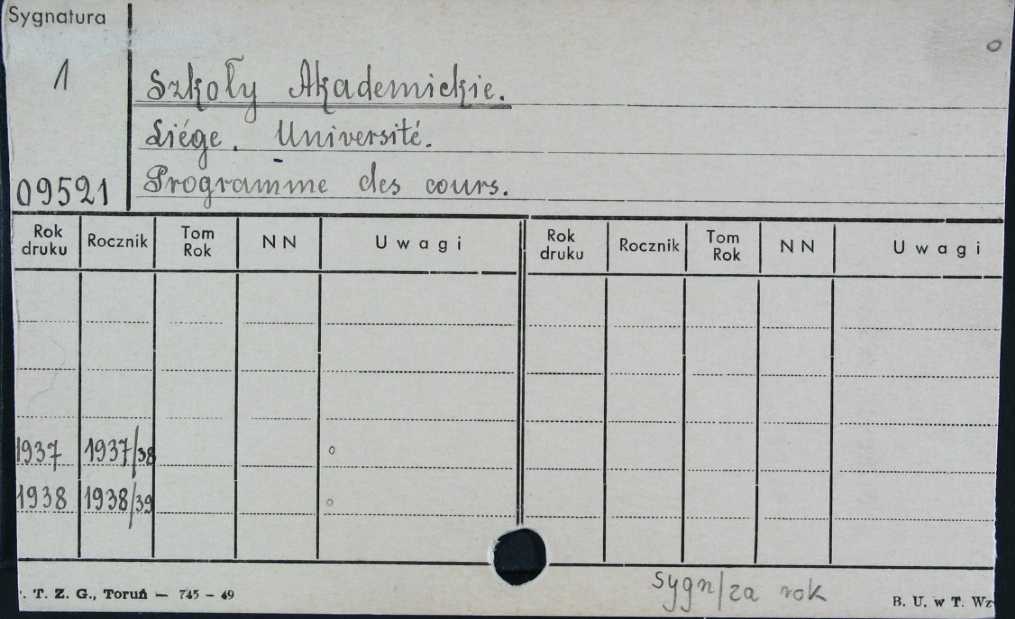 Sygnatura
1
Szkoły Akademickie.
Liége. Université.
09521
Programme des cours.
Rok druku Rocznik Tom Rok NN Uwagi Rok druku Rocznik Tom Rok NN Uwagi
1937 1937/38 o
1938 1938/39 o
sygn/za rok
. T. Z. G., Toruń — 745 - 49
B. U. w T. Wz